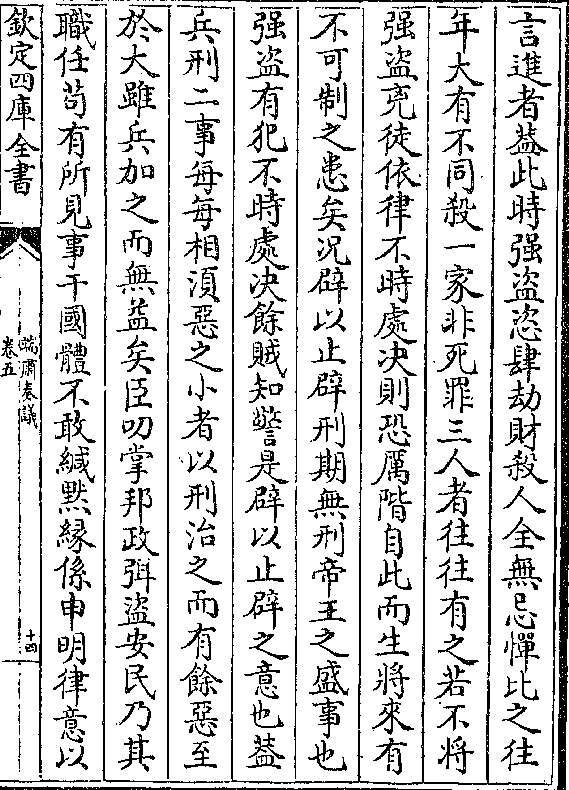 言進者葢此時强盗恣肆劫財殺人全無忌憚比之往
年大有不同殺一家非死罪三人者往往有之若不將
强盗兇徒依律不時處决則恐厲階自此而生將來有
不可制之患矣况辟以止辟刑期無刑帝王之盛事也
强盗有犯不時處决餘賊知警是辟以止辟之意也葢
兵刑二事每每相湏惡之小者以刑治之而有餘惡至
於大雖兵加之而無益矣臣叨掌邦政弭盜安民乃其
職任苟有所見事干國體不敢緘黙縁係申明律意以
欽定四庫全書
端肅奏議
卷五
十四